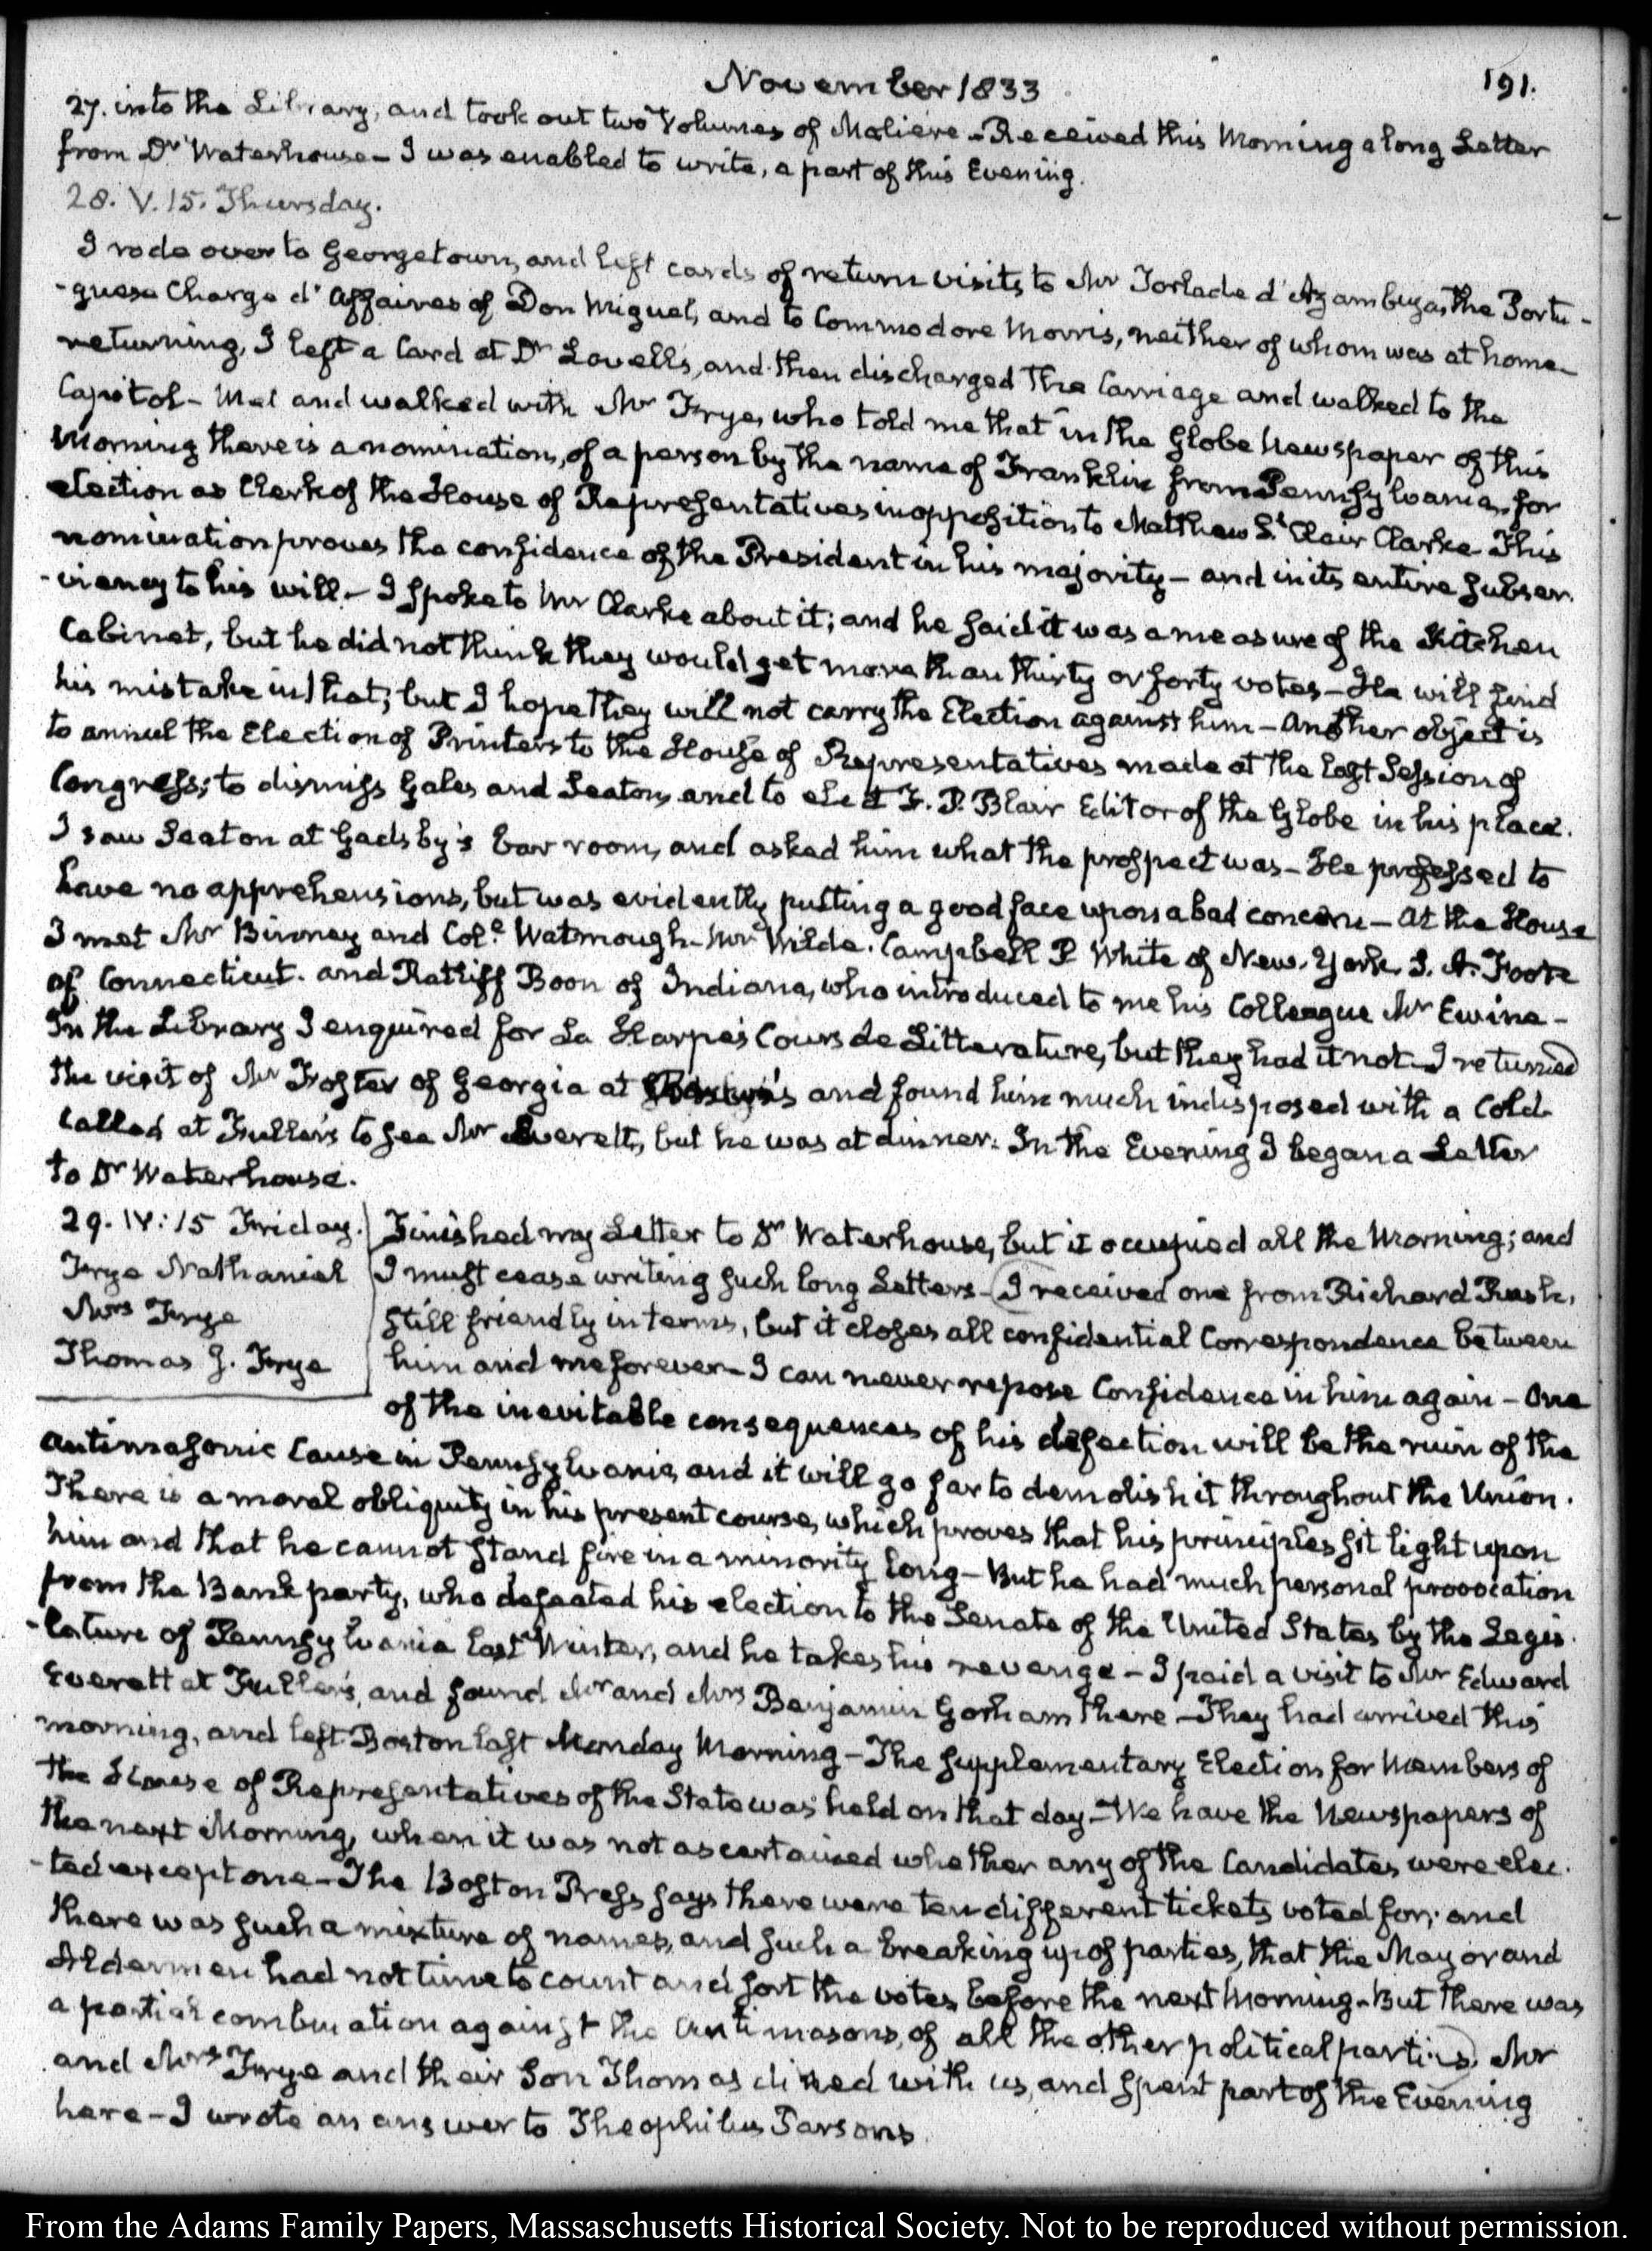 November 1833
191.
27. into the Library, and took out two Volumes of Moliere - Received this Morning a long Letter
from Dr. Waterhouse - I was enabled to write, a part of this Evening.
28. V. 15. Thursday.
I rode over to Georgetown, and left cards of return visits to Mr Torlade d'Azambuja, the Portu-
-guese Charge d'Affaires of Don Miguel, and to Commodore Morris, neither of whom was at home-
returning, I left a Card at Dr Lovell's, and then discharged the Carriage and walked to the
Capitol - Met and walked with Mr Frye, who told me that in the Globe Newspaper of this
Morning there is a nomination, of a person by the name of Franklin from Pennsylvania, for
election as Clerk of the House of Representatives in opposition to Matthew St Clair Clarke This
nomination proves the confidence of the President in his majority - and in its entire subser.
-viency to his will. - I spoke to Mr Clarke about it; and he said it was a measure of the Kitchen
Cabinet, but he did not think they would get more than thirty or forty votes - He will find
his mistake in that; but I hope they will not carry the Election against him - Another object is
to annul the Election of Printers to the House of Representatives made at the last Session of
Congress; to dismiss Gales and Seaton, and to elect F. P. Blair Editor of the Globe in his place.
I saw Seaton at Gadsby's bar room, and asked him what the prospect was - He professed to
have no apprehensions, but was evidently putting a good face upon a bad concern - At the House
I met Mr Binney and Col.e Watmough - Mr Wilde. Campbell P White of New-York, S. A. Foote
of Connecticut. and Ratliff Boon of Indiana, who introduced to me his Colleague Mr Ewing -
In the Library I enquired for La Harpe's Cours de Litterature, but they had it not - I returned
the visit of Mr Foster of Georgia at and found him much indisposed with a Cold-
Called at Fuller's to see Mr Everett, but he was at dinner. In the Evening I began a Letter
to Dr Waterhouse.
29. IV:15 Friday.
Frye Nathaniel
Mrs Frye
Thomas J. Frye
Finished my Letter to Dr Waterhouse, but it occupied all the Morning; and
I must cease writing such long Letters - I received one from Richard Rush,
still friendly in terms, but it closes all confidential Correspondence between
him and me forever - I can never repose Confidence in him again - One
of the inevitable consequences of his defection will be the ruin of the
Antimasonic Cause in Pennsylvania, and it will go far to demolish it throughout the Union.
There is a moral obliquity in his present course, which proves that his principles sit light upon
him and that he cannot stand fire in a minority long - But he had much personal provocation
from the Bank party, who defeated his election to the Senate of the United States by the Legis.
-lature of Pennsylvania last Winter, and he takes his revenge - I paid a visit to Mr Edward
Everett at Fuller's, and found Mr and Mrs Benjamin Gorham there - They had arrived this
morning, and left Boston last Monday Morning - The supplementary Election for Members of
the House of Representatives of the State was held on that day - We have the Newspapers of
the next Morning, when it was not ascertained whether any of the Candidates were elec.
-ted except one - The Boston Press says there were ten different tickets voted for; and
there was such a mixture of names, and such a breaking up of parties, that the Mayor and
Aldermen had not time to count and sort the votes before the next Morning - But there was
a partial combination against the Antimasons, of all the other political parties. Mr
and Mrs Frye and their Son Thomas dined with us, and spent part of the Evening
here - I wrote an answer to Theophilus Parsons
From the Adams Family Papers, Massachusetts Historical Society. Not to be reproduced without permission.